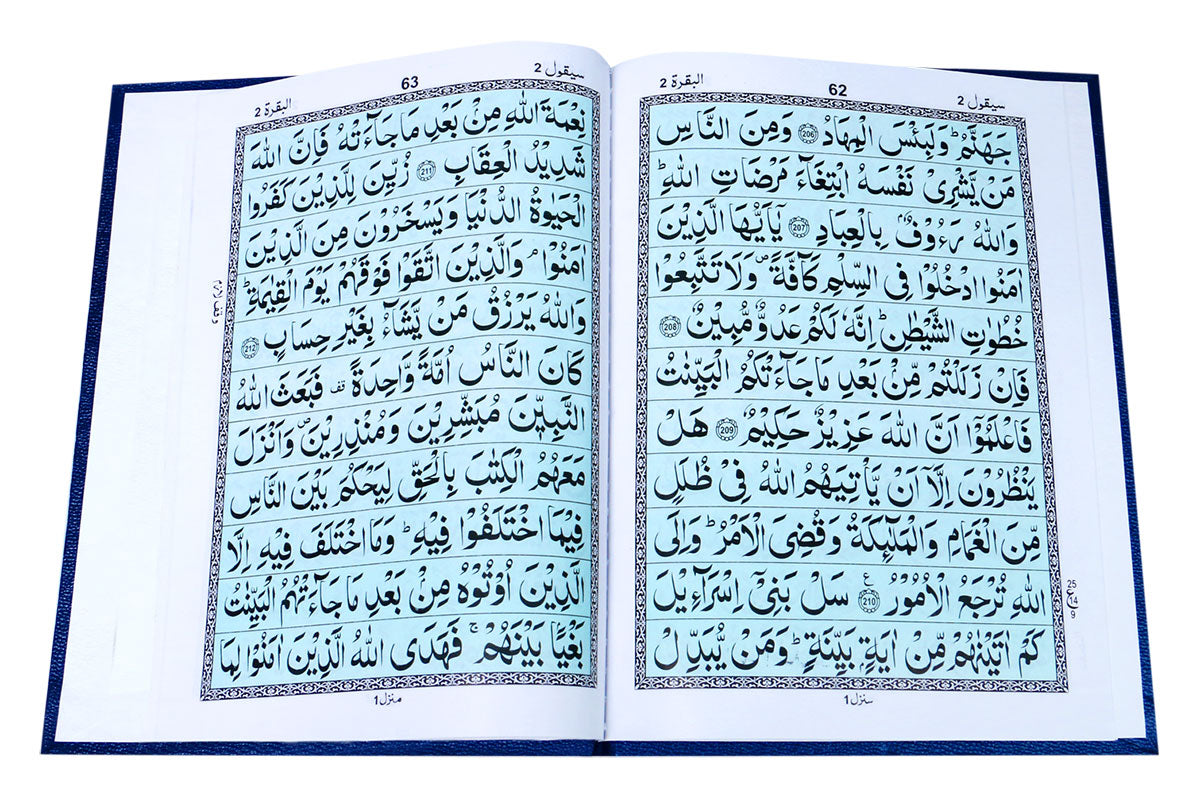 البقرة 2
62
سيقول 2
جَهَنَّمُ ؕ وَلَبِئْسَ الْمِهَادُ 206 وَمِنَ النَّاسِ
مَنْ يَّشْرِىْ نَفْسَهُ ابْتِغَآءَ مَرْضَاتِ اللّٰهِ ؕ
وَاللّٰهُ رَءُوْفٌۢ بِالْعِبَادِ 207 يٰۤاَيُّهَا الَّذِيْنَ
اٰمَنُوا ادْخُلُوْا فِى السِّلْمِ كَآفَّةً ۪ وَلَا تَتَّبِعُوْا
خُطُوٰتِ الشَّيْطٰنِ ؕ اِنَّهٗ لَكُمْ عَدُوٌّ مُّبِيْنٌ 208
فَاِنْ زَلَلْتُمْ مِّنْۢ بَعْدِ مَا جَآءَتْكُمُ الْبَيِّنٰتُ
فَاعْلَمُوْۤا اَنَّ اللّٰهَ عَزِيْزٌ حَكِيْمٌ 209 هَلْ
يَنْظُرُوْنَ اِلَّاۤ اَنْ يَّاْتِيَهُمُ اللّٰهُ فِىْ ظُلَلٍ
مِّنَ الْغَمَامِ وَالْمَلٰٓئِكَةُ وَقُضِىَ الْاَمْرُ ؕ وَاِلَى
اللّٰهِ تُرْجَعُ الْاُمُوْرُ 210 ع سَلْ بَنِىْۤ اِسْرَآءِيْلَ
كَمْ اٰتَيْنٰهُمْ مِّنْ اٰيَةٍۢ بَيِّنَةٍ ؕ وَمَنْ يُّبَدِّلْ
25
ع 14
9
منزل 1
سيقول 2
63
البقرة 2
نِعْمَةَ اللّٰهِ مِنْۢ بَعْدِ مَا جَآءَتْهُ فَاِنَّ اللّٰهَ
شَدِيْدُ الْعِقَابِ 211 زُيِّنَ لِلَّذِيْنَ كَفَرُوا
الْحَيٰوةُ الدُّنْيَا وَيَسْخَرُوْنَ مِنَ الَّذِيْنَ
اٰمَنُوْا ۘ وَالَّذِيْنَ اتَّقَوْا فَوْقَهُمْ يَوْمَ الْقِيٰمَةِ ؕ
وَاللّٰهُ يَرْزُقُ مَنْ يَّشَآءُ بِغَيْرِ حِسَابٍ 212
كَانَ النَّاسُ اُمَّةً وَّاحِدَةً قف فَبَعَثَ اللّٰهُ
النَّبِيّٖنَ مُبَشِّرِيْنَ وَمُنْذِرِيْنَ ۪ وَاَنْزَلَ
مَعَهُمُ الْكِتٰبَ بِالْحَقِّ لِيَحْكُمَ بَيْنَ النَّاسِ
فِيْمَا اخْتَلَفُوْا فِيْهِ ؕ وَمَا اخْتَلَفَ فِيْهِ اِلَّا
الَّذِيْنَ اُوْتُوْهُ مِنْۢ بَعْدِ مَا جَآءَتْهُمُ الْبَيِّنٰتُ
بَغْيًۢا بَيْنَهُمْ ۚ فَهَدَى اللّٰهُ الَّذِيْنَ اٰمَنُوْا لِمَا
منزل 1